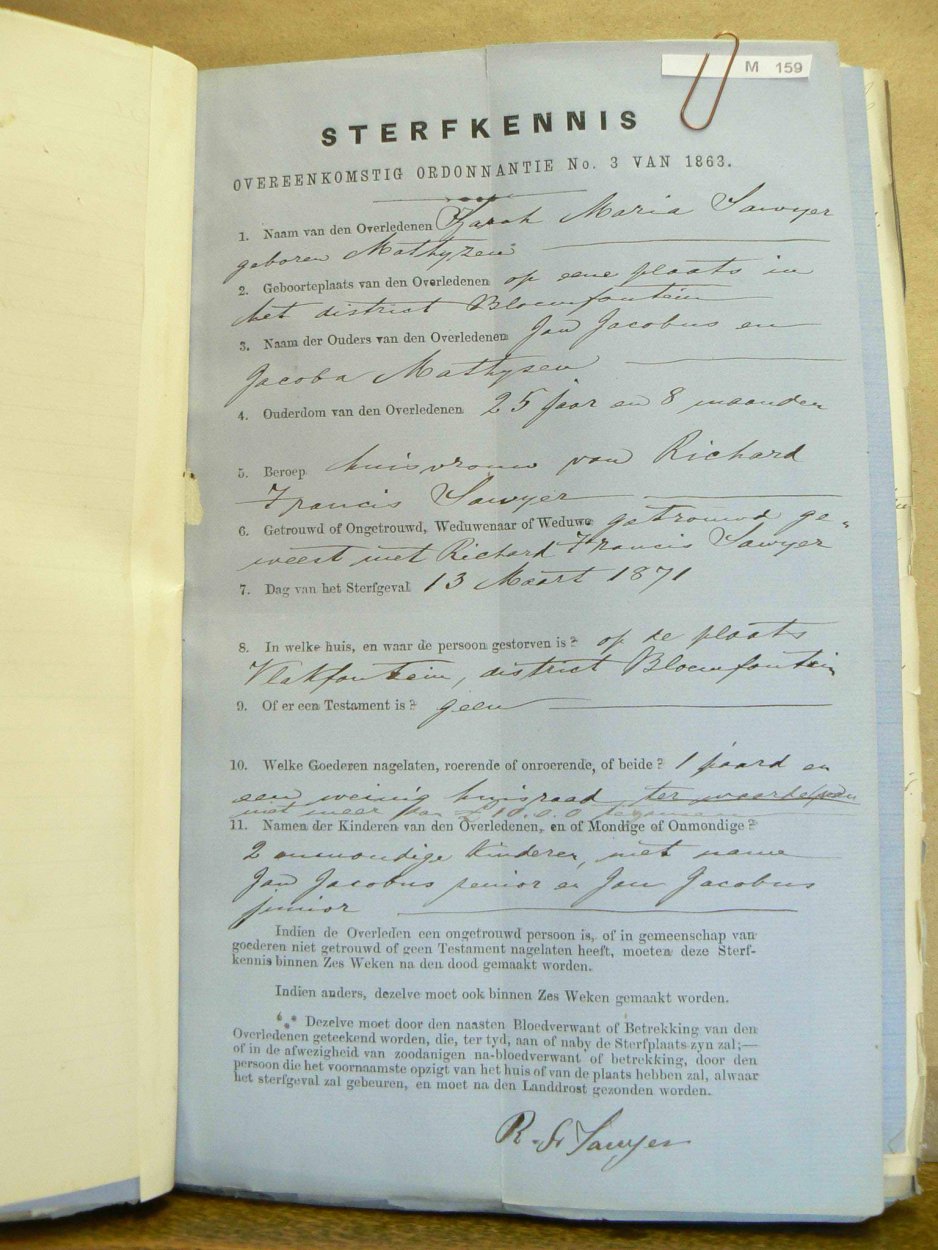 M 159
STERFKENNIS
OVEREENKOMSTIG ORDONNANTIE No. 3 VAN 1863.
1. Naam van den Overledenen Sarah Maria Sawyer
geboren Mathyzen
2. Geboorteplaats van den Overledenen op eene plaats in
het district Bloemfontein
3. Naam der Ouders van den Overledenen Jan Jacobus en
Jacoba Mathysen
4. Ouderdom van den Overledenen 25 jaar en 8 maanden
5. Beroep huisvrouw van Richard
Francis Sawyer
6. Getrouwd of Ongetrouwd, Weduwenaar of Weduwe getrouwd ge-
weest met Richard Francis Sawyer
7. Dag van het Sterfgeval 13 Maart 1871
8. In welke huis, en waar de persoon gestorven is? op de plaats
Vlakfontein, district Bloemfontein
9. Of er een Testament is? geen
10. Welke Goederen nagelaten, roerende of onroerende, of beide? 1 paard en
een weinig huisraad ter waarde van
niet meer dan £10.0.0 tezamen
11. Namen der Kinderen van den Overledenen, en of Mondige of Onmondige?
2 onmondige kinderen, met name
Jan Jacobus senior en Jan Jacobus
junior
Indien de Overleden een ongetrouwd persoon is, of in gemeenschap van
goederen niet getrouwd of geen Testament nagelaten heeft, moeten deze Sterf-
kennis binnen Zes Weken na den dood gemaakt worden.
Indien anders, dezelve moet ook binnen Zes Weken gemaakt worden.
*** Dezelve moet door den naasten Bloedverwant of Betrekking van den
Overledenen geteekend worden, die, ter tyd, aan of naby de Sterfplaats zyn zal;—
of in de afwezigheid van zoodanigen na-bloedverwant of betrekking, door den
persoon die het voornaamste opzigt van het huis of van de plaats hebben zal, alwaar
het sterfgeval zal gebeuren, en moet na den Landdrost gezonden worden.
R. Fr Sawyer